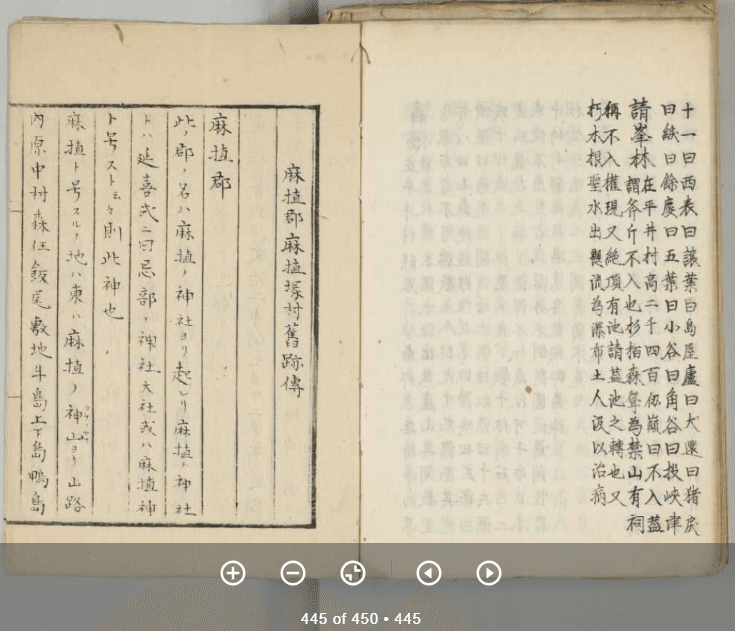 十一曰西表曰譲葉曰島屋盧曰犬還曰猪戻
曰紙曰餘慶曰五葉曰小谷曰角谷曰投峡津
請峯林在平井村高二千四百仞巓曰不入蓋
謂斧斤不入也杉栢森聳為禁山有祠
稱不入権現又絶頂有池請蓋池之轉也又
朽木根聖水出懸流為瀑布土人汲以治病
麻植郡麻植塚村舊跡傳
麻植郡
此ノ郡ノ名ハ麻植ノ神社ヨリ起レリ麻植ノ神社
トハ延喜式ニ曰忌部ノ神社大社或ハ麻植神
ト号スト云々則此神也
麻植ト号スルノ地ハ東ハ麻植ノ神山ヨリ山路
内原中村森任飯尾敷地牛島上下島鴨島
445 of 450 • 445